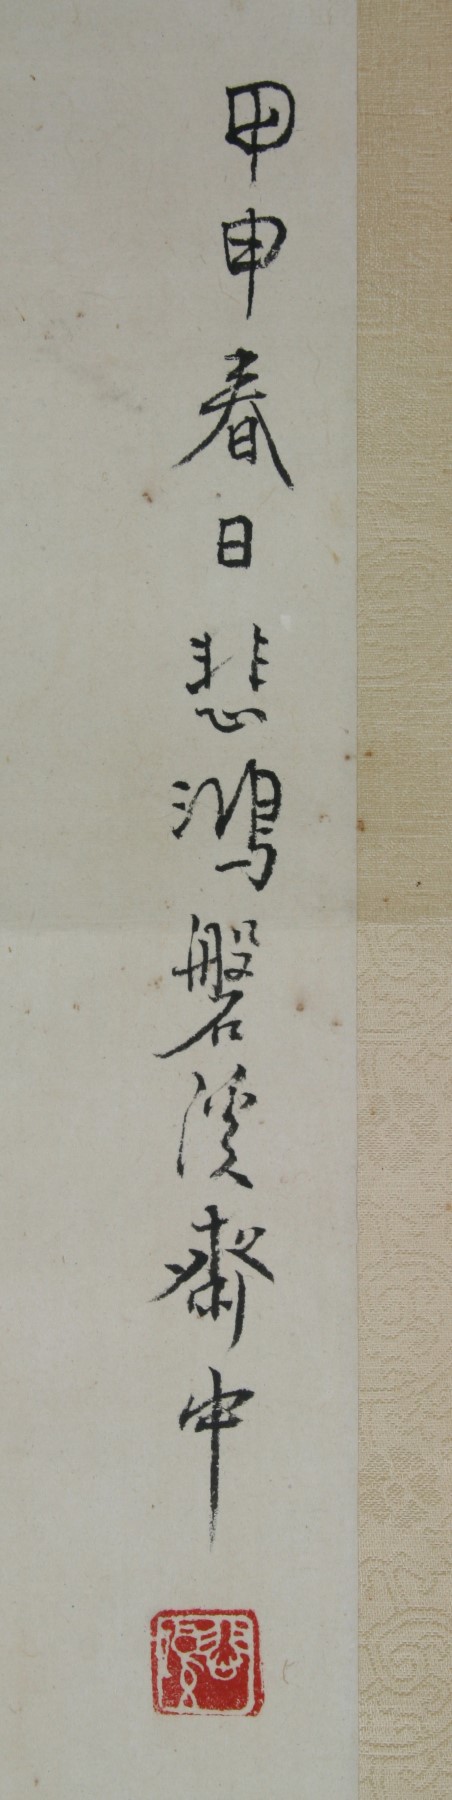 甲申春日悲鸿磐溪斋中